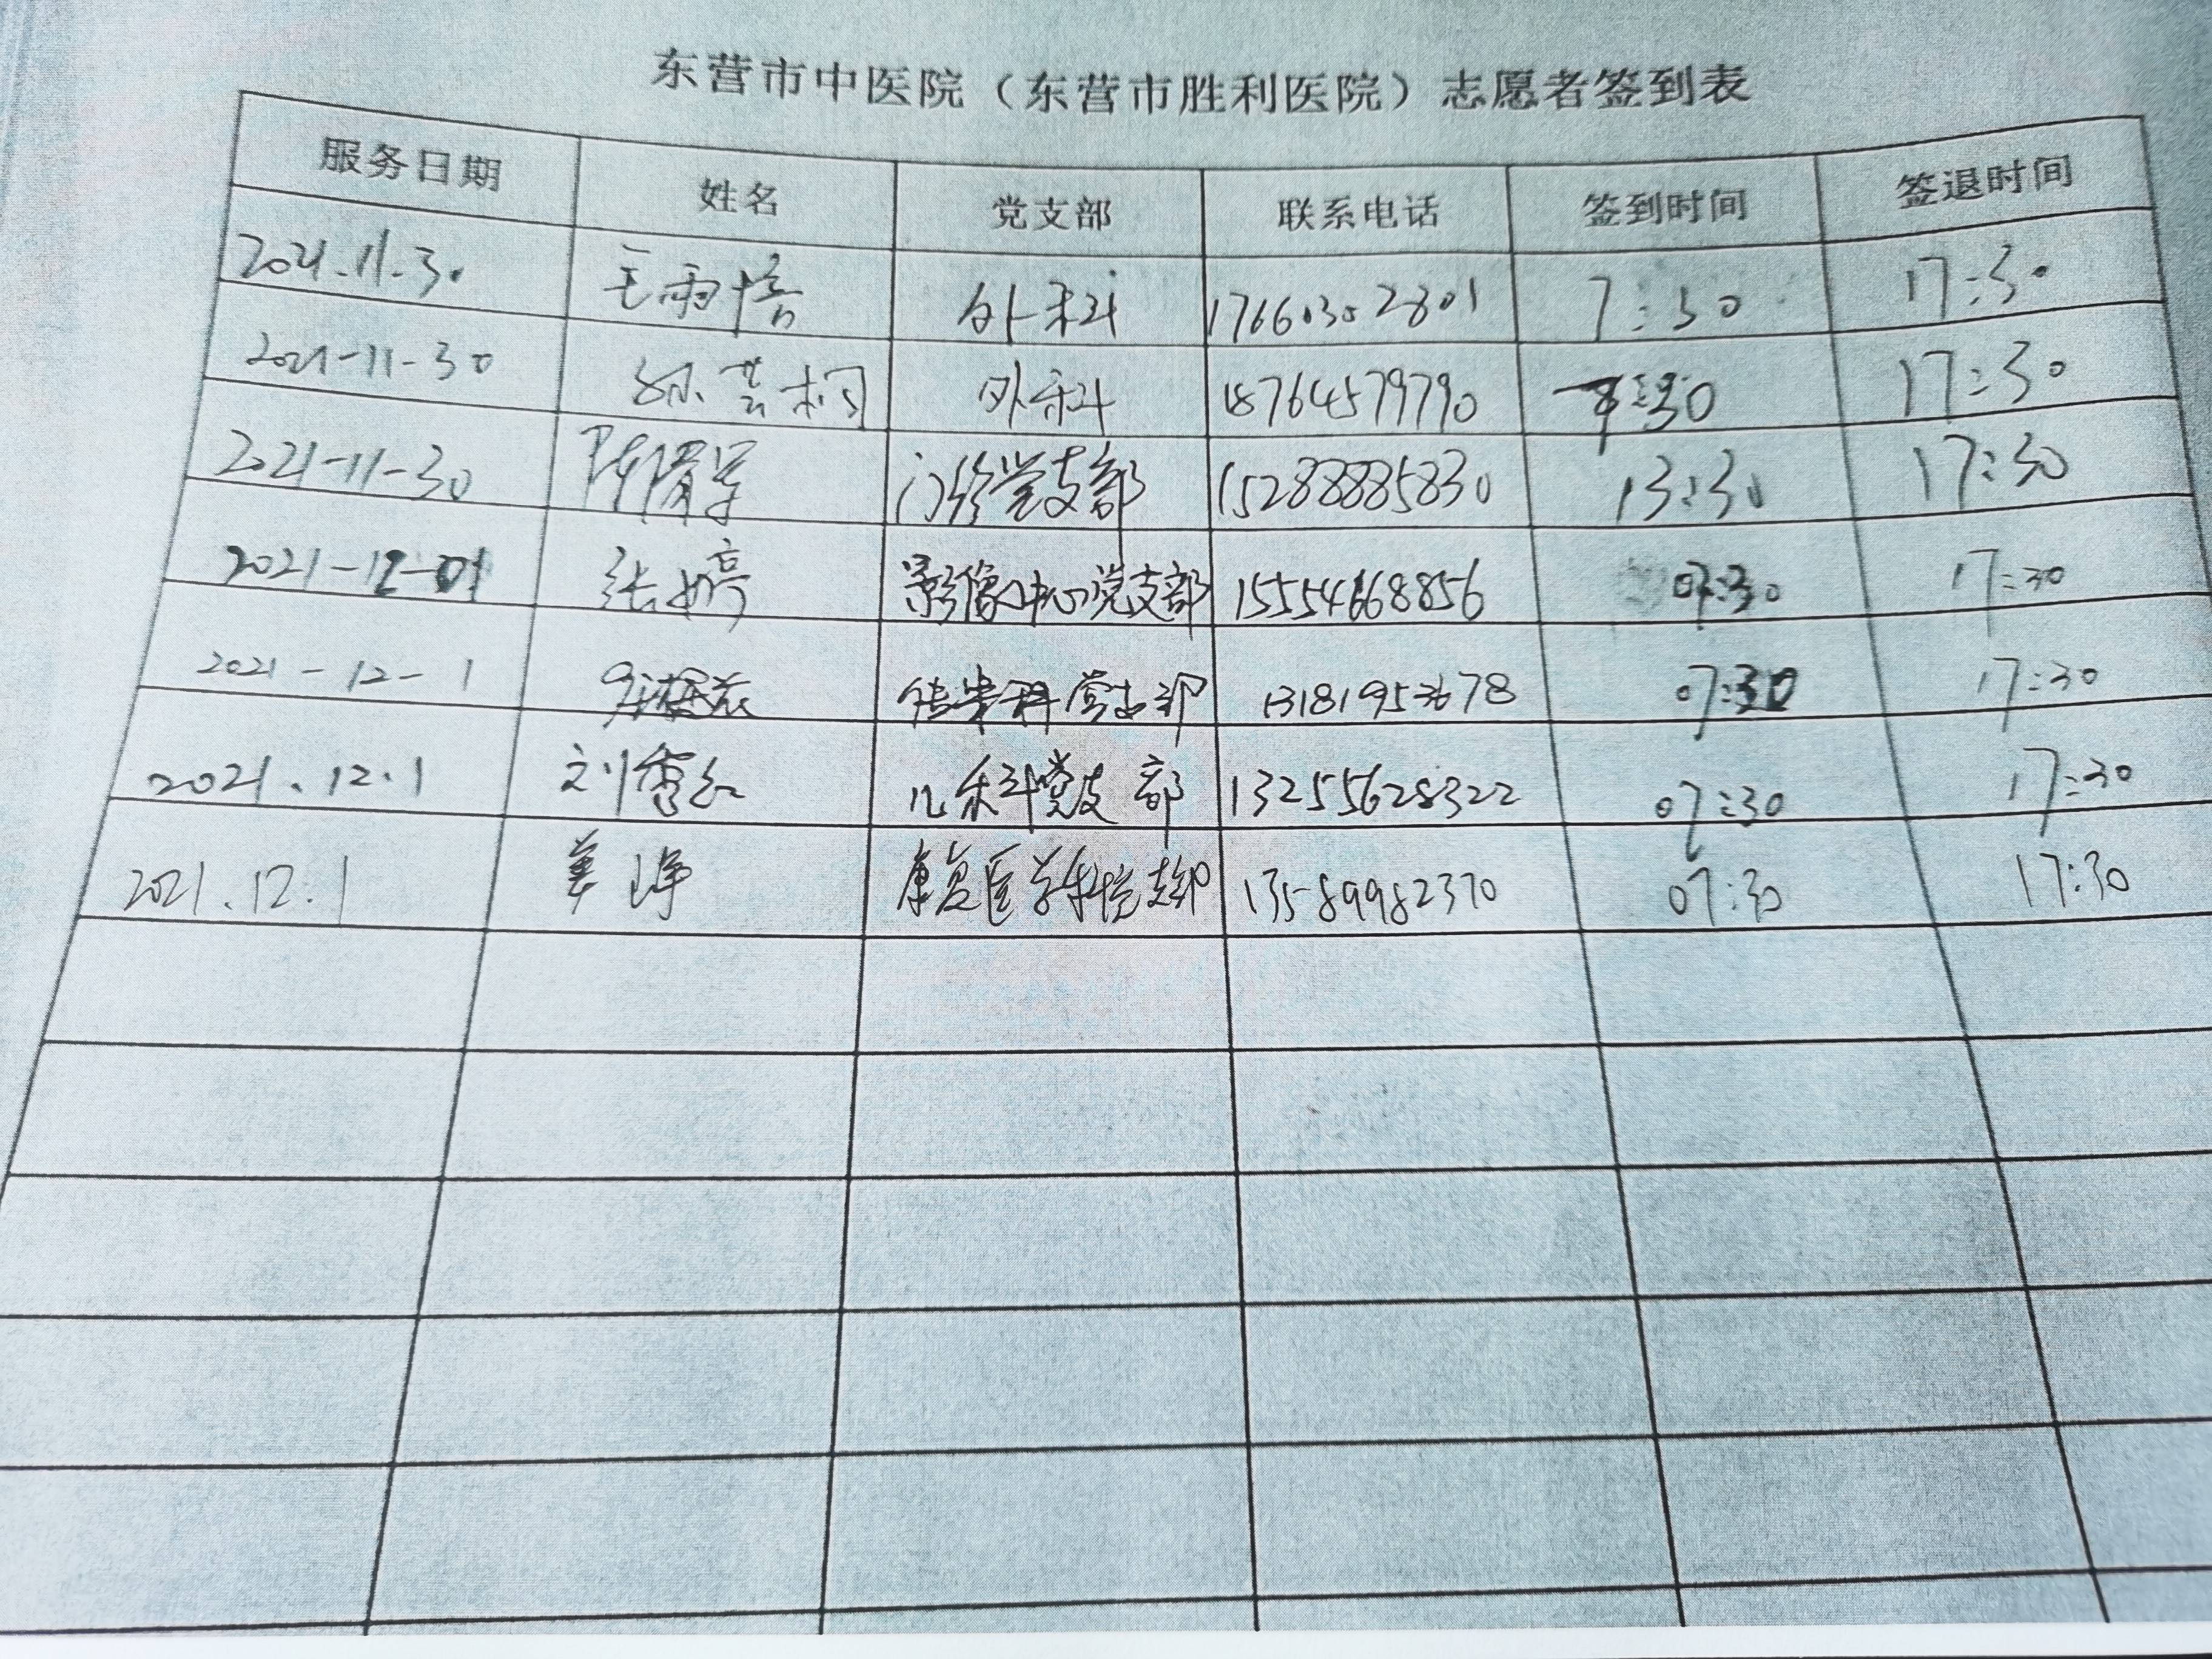 东营市中医院（东营市胜利医院）志愿者签到表
服务日期 姓名 党支部 联系电话 签到时间 签退时间
2021.11.30 王雨培 外科 17660302801 7:30 17:30
2021-11-30 孙芸桐 外科 18764579790 17:30
2021-11-30 陈胥军 门诊党支部 15288885830 13:30 17:30
2021-12-01 张婷 影像中心党支部 15554668856 07:30 17:30
2021-12-1 党支部 07:30 17:30
2021.12.1 刘雪红 儿科党支部 13255628322 07:30 17:30
2021.12.1 姜峥 康复医学科党支部 13589982370 07:30 17:30